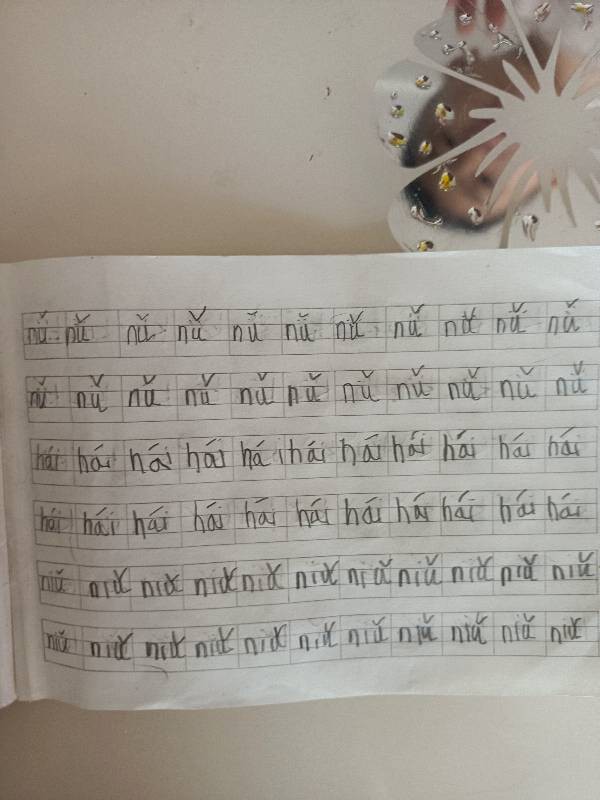 nǚ nǚ nǚ nǚ nǚ nǚ nǚ nǚ nǚ nǚ nǚ
nǚ nǚ nǚ nǚ nǚ nǚ nǚ nǚ nǚ nǚ nǚ
hái hái hái hái há hái hái hái hái hái hái
hái hái hái hái hái hái hái hái hái hái hái
niǔ niǔ niǔ niǔ niǔ niǔ niǔ niǔ niǔ niǔ niǔ
niǔ niǔ niǔ niǔ niǔ niǔ niǔ niǔ niǔ niǔ niǔ